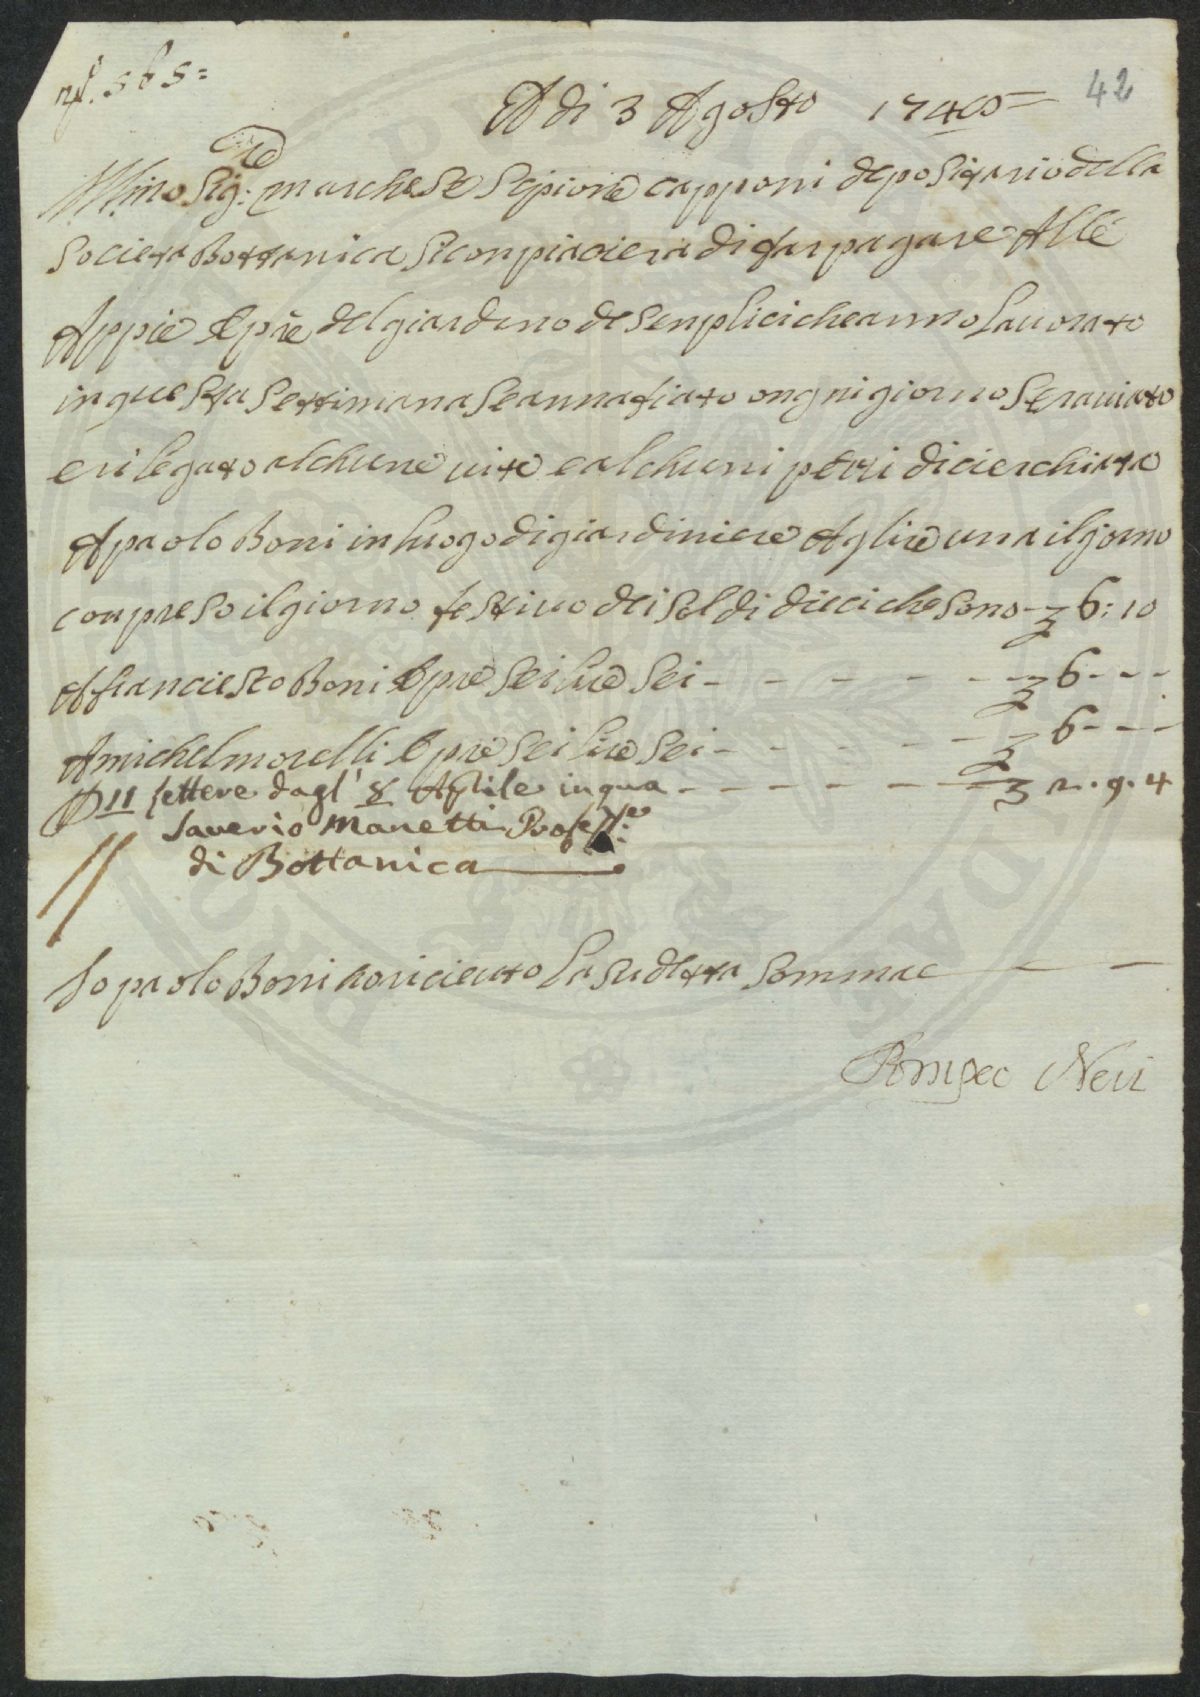 nf. 565=
42
A di 3 Agosto 1740
Ill:mo Sig:re marchese Scipione capponi depositario della
Societa Bottanica si conpiaciera di far pagare Alle
Appie Opre del giardino de senplici che anno Lauorato
in questa settimana se annafiato ongni giorno
e rilegato alchune uite e alchuni pezzi di cierchiata
A paolo Boni in luogo di giardiniere A lire una il giorno
conpreso il giorno festiuo dei soldi dieci che sono 6: 10
A franciesco Boni Opre sei lire sei - - - - - - 6 - - -
A michel morelli Opre sei lire sei - - - - - - 6 - - -
P 11 lettere dagl' 8 Aprile in qua - - - - - - 2. 9. 4
Saverio Manetti Profess:re
di Bottanica
Io paolo Boni o riceuto La sudetta somma
Pompeo Neri